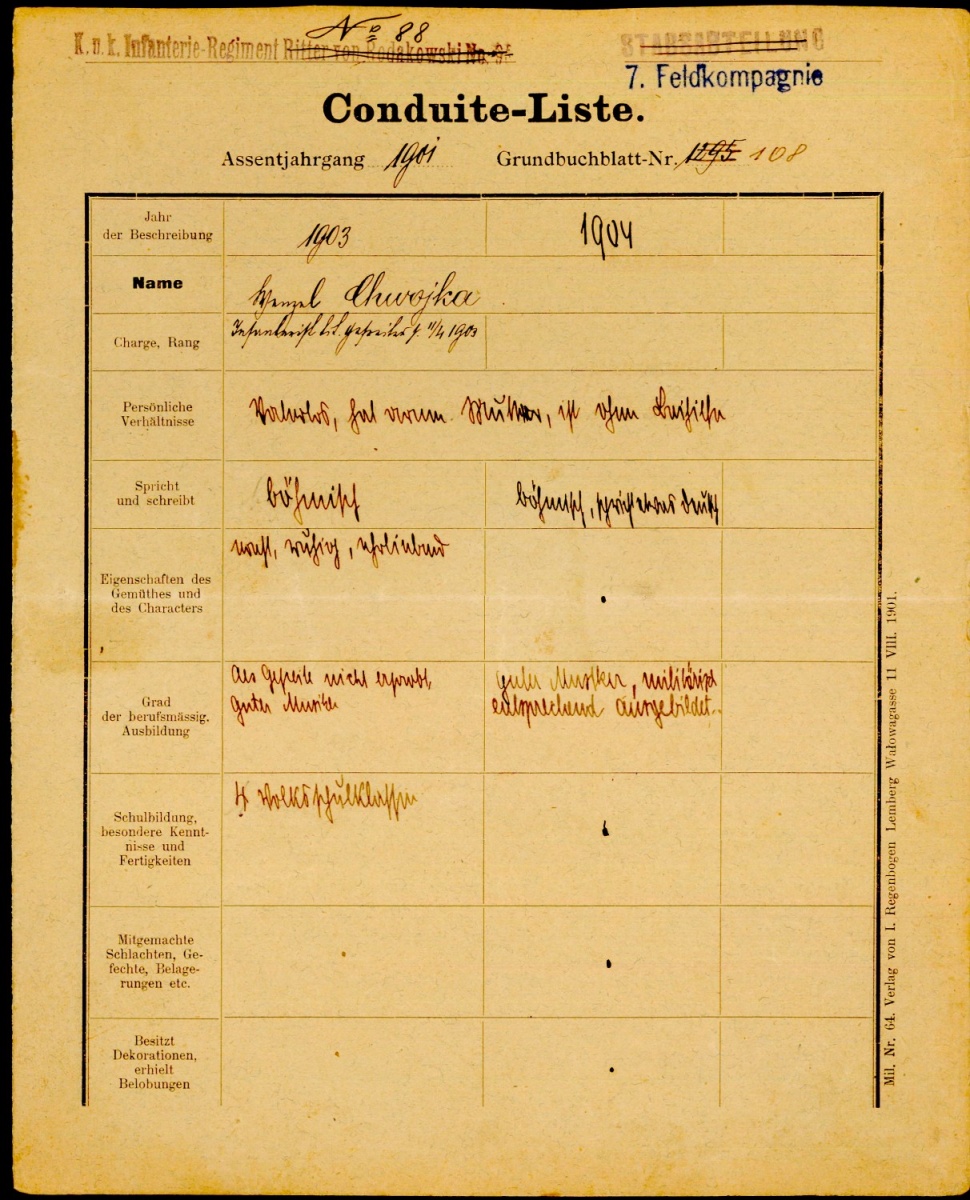 No 88
K. u. k. Infanterie-Regiment Ritter von Rodakowski No. 95
STABSABTEILUNG
7. Feldkompagnie
Conduite-Liste.
Assentjahrgang 1901 Grundbuchblatt-Nr. 1295 108
Jahr
der Beschreibung
1903 1904
Name
Wenzel Chwojka
Charge, Rang
Infanterist t. t. Gefreiter 1903
Persönliche
Verhältnisse
Vaterlos, hat arme Mutter, ist ohne Beihilfe
Spricht
und schreibt
böhmisch böhmisch, spricht etwas deutsch
Eigenschaften des
Gemüthes und
des Characters
ernst, ruhig, ehrliebend
Grad
der berufsmässig.
Ausbildung
Als Gefreite nicht erprobt,
guter Musiker
guter Musiker, militärisch
entsprechend ausgebildet.
Schulbildung,
besondere Kennt-
nisse und
Fertigkeiten
4 Volksschulklassen
Mitgemachte
Schlachten, Ge-
fechte, Belage-
rungen etc.
Besitzt
Dekorationen,
erhielt
Belobungen
Mil. Nr. 64. Verlag von I. Regenbogen Lemberg Wałowagasse 11 VIII. 1901.